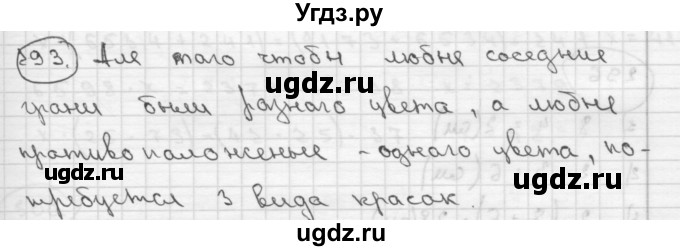 Угдз.ру
293. Для того чтобы любые соседние
ugdz.ru ugdz.ru
грани были разного цвета, а любые
противоположеные - одного цвета, по-
ugdz.ru ugdz.ru
требуется 3 вида красок.
ugdz.ru